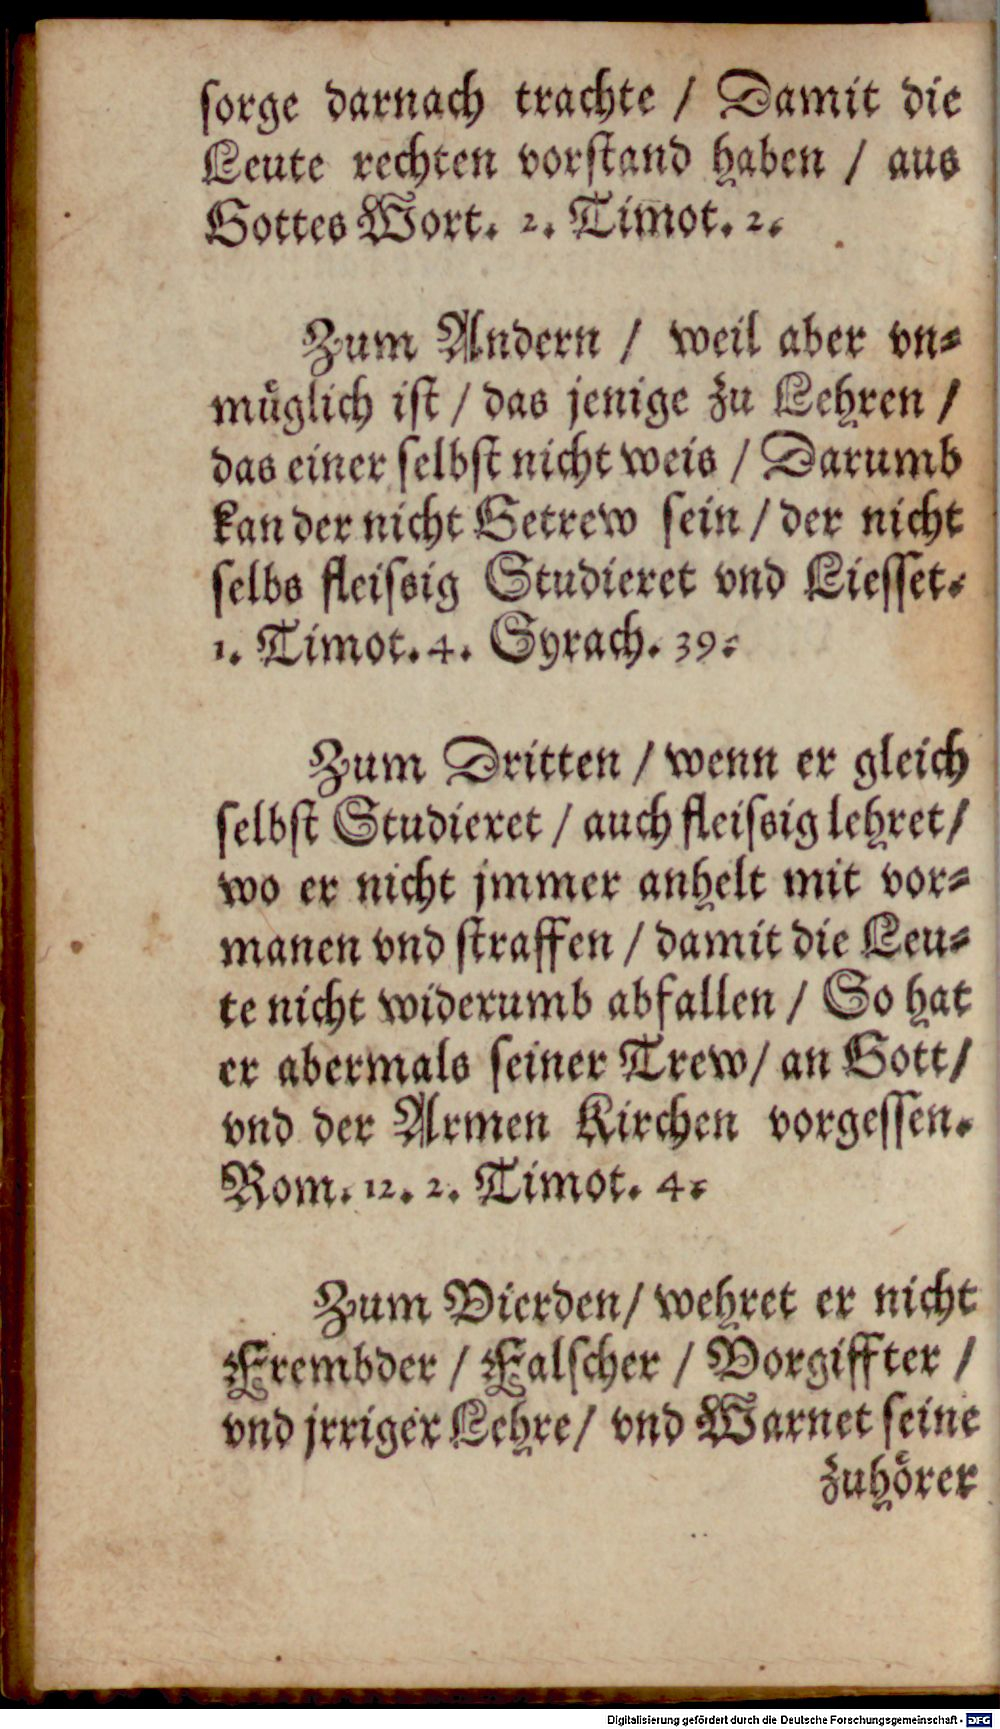 sorge darnach trachte / Damit die
Leute rechten vorstand haben / aus
Gottes Wort. 2. Timot. 2.
Zum Andern / weil aber vn-
muͤglich ist / das jenige zu Lehren /
das einer selbst nicht weis / Darumb
kan der nicht Getrew sein / der nicht
selbs fleissig Studieret vnd Liesset.
1. Timot. 4. Syrach. 39.
Zum Dritten / wenn er gleich
selbst Studieret / auch fleissig lehret /
wo er nicht jmmer anhelt mit vor-
manen vnd straffen / damit die Leu-
te nicht widerumb abfallen / So hat
er abermals seiner Trew / an Gott /
vnd der Armen Kirchen vorgessen.
Rom. 12. 2. Timot. 4.
Zum Vierden / wehret er nicht
Frembder / Falscher / Vorgiffter /
vnd jrriger Lehre / vnd Warnet seine
zuhoͤrer
Digitalisierung gefördert durch die Deutsche Forschungsgemeinschaft - DFG